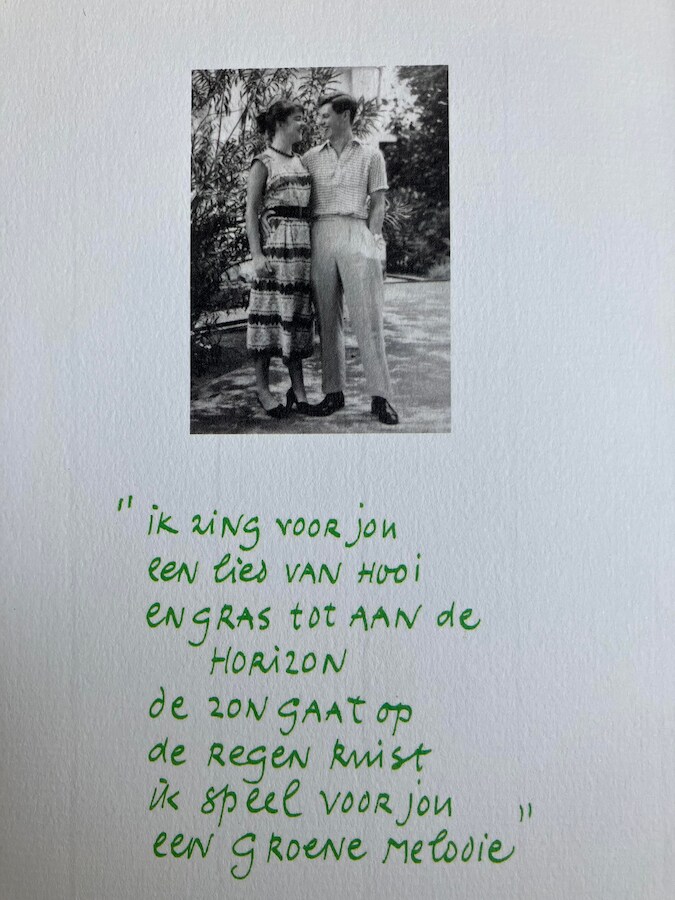 "ik zing voor jou
een lied van hooi
en gras tot aan de
horizon
de zon gaat op
de regen ruist
ik speel voor jou
een groene melodie"